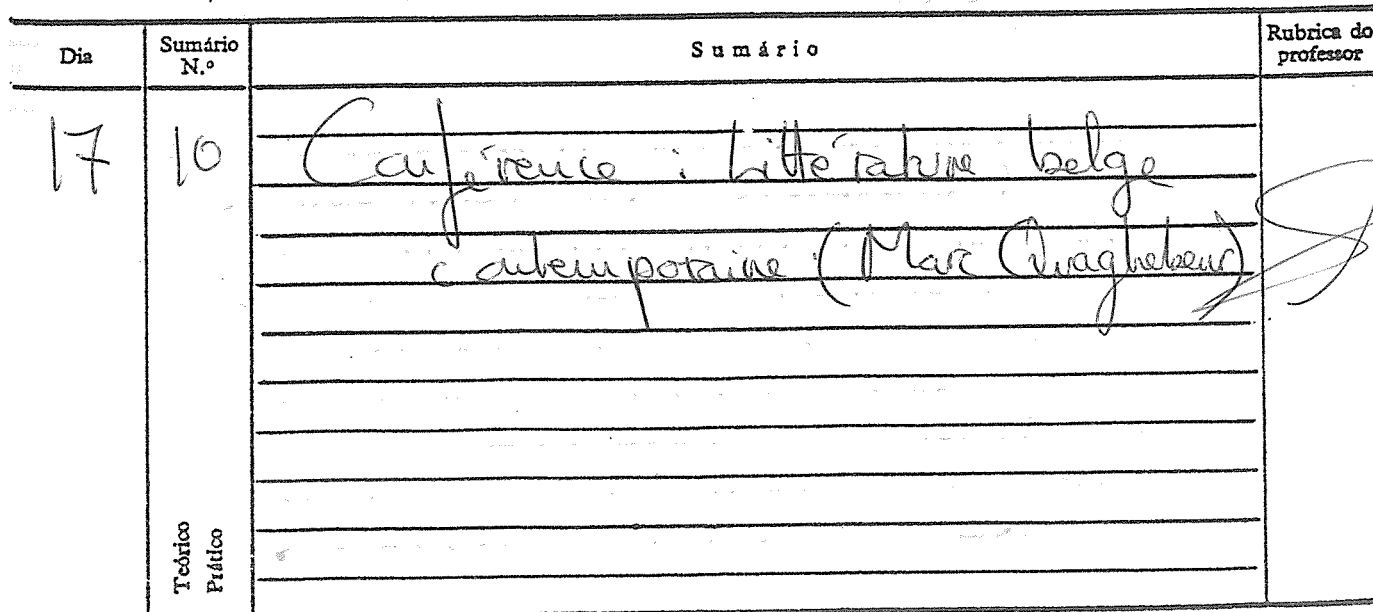 Dia Sumário N.º Sumário Rubrica do professor
17 10 Conférence : Littérature belge
contemporaine (Marc Quaghebeur)
Teórico
Prático